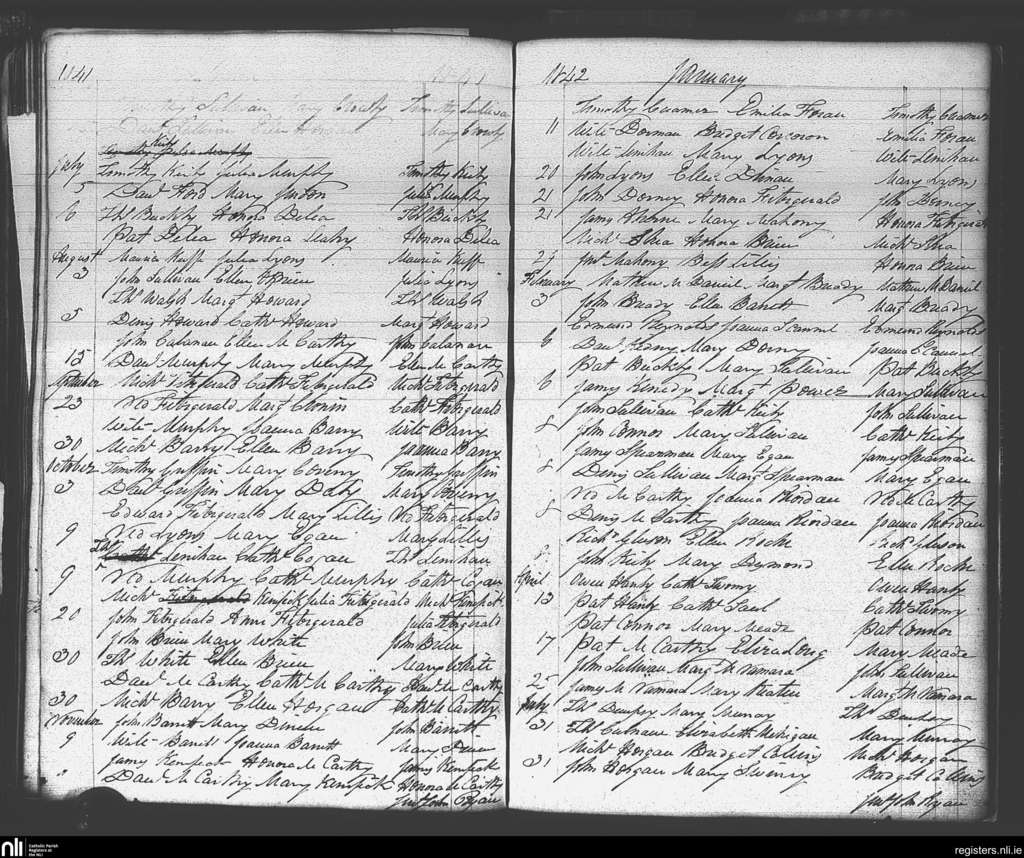 1841
Timothy Sulivan Mary Crouly Timothy Sullivan
Danl Sullivan Ellen Horgan Mary Crouly
July Timothy Keily Julia Murphy Timothy Keily
5 Danl Ford Mary Julia Murphy
6 Thos Buckly Honora Delea Thos Buckly
Pat Delea Honora Leahy Honora Delea
August Maurice Julia Lyons Maurice
3 John Sullivan Ellen OBrien Julia Lyons
Thos Walsh Margt Howard Thos Walsh
5 Denis Howard Cathe Howard Margt Howard
John Calanan Ellen McCarthy John Calanan
15 Danl Murphy Mary Murphy Ellen McCarthy
September Michl Fitzgerald Cathe Fitzgerald Michl Fitzgerald
23 Ned Fitzgerald Margt Cronin Cathe Fitzgerald
Willm Murphy Joanna Barry Willm Barry
30 Michl Barry Ellen Barry Joanna Barry
October Timothy Griffin Mary Coveny Timothy Griffin
3 Danl Griffin Mary Daly Mary Coveny
Edward Fitzgerald Mary Lillis Ned Fitzgerald
9 Ned Lyons Mary Egan Mary Lillis
Thos Lenihan Cathe Cogan Thos Lenihan
9 Ned Murphy Cathe Murphy Cathe Cogan
Michl Kenifick Julia Fitzgerald Michl Kenifick
20 John Fitzgerald Anne Fitzgerald Julia Fitzgerald
John Brien Mary White John Brien
30 Thos White Ellen Brien Mary White
Danl McCarthy Cathe McCarthy Danl McCarthy
30 Michl Barry Ellen Horgan Cathe McCarthy
November John Barrett Mary Dineen John Barrett
9 Willm Barrett Joanna Barrett Mary
Jamy Kenifick Honora McCarthy Jamy Kenifick
" Danl McCarthy Mary Kenifick Honora McCarthy
John Ryan
1842 January
Timothy Creamer Emilia Foran Timothy Creamer
11 Willm Gorman Bridget Corcoran Emilia Foran
Willm Lenihan Mary Lyons Willm Lenihan
20 John Lyons Ellen Dinan Mary Lyons
21 John Dorney Honora Fitzgerald John Dorney
21 Jamy Ahearne Mary Mahony Honora Fitzgerald
Michl Shea Honora Brien Michl Shea
27 Jno Mahony Bess Lillis Honora Brien
February Mathew McDaniel Margt Boudy Mathew McDaniel
3 John Boudy Ellen Barrett Margt Boudy
Edmund Reynolds Joanna Scannel Edmund Reynolds
6 Danl Mary Dorny Joanna Scannel
Pat Buckly Mary Sullivan Pat Buckly
6 Jamy Margt Power Mary Sullivan
John Sullivan Cathe Keily John Sullivan
8 John Connor Mary Sullivan Cathe Keily
Jamy Spearman Mary Egan Jamy Spearman
8 Denis Sullivan Margt Spearman Mary Egan
Ned McCarthy Joanna Riordan Ned McCarthy
8 Denis McCarthy Joanna Riordan Joanna Riordan
Richd Gleeson Ellen Roche Richd Gleeson
8 John Keily Mary Desmond Ellen Roche
April Owen Hanly Cathe Twomy Owen Hanly
12 Pat Hanly Cathe Saul Cathe Twomy
Pat Connor Mary Meade Pat Connor
17 Pat McCarthy Eliza Long Mary Meade
John Sullivan Margt McNamara John Sullivan
25 Jamy McNamara Mary Keatin Margt McNamara
July Thos Dempsy Mary Murray Thos Dempsy
31 Thos Culnane Elizabeth Mihigan Mary Murray
Michl Horgan Bridget Collins Michl Horgan
31 John Horgan Mary Sweeny Bridget Collins
John Ryan
nli
Catholic Parish
Registers at
the NLI
registers.nli.ie